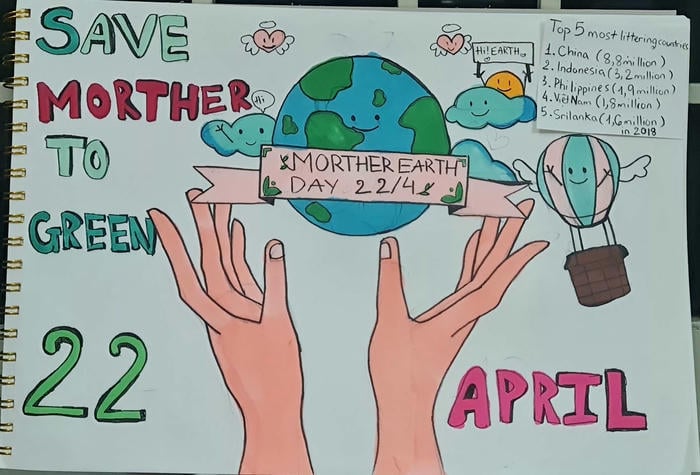 SAVE
MORTHER
TO
GREEN
Hi
Hi! EARTH
Top 5 most littering countries
1. China (8,8 million)
2. Indonesia (3,2 million)
3. Philippines (1,9 million)
4. Việt Nam (1,8 million)
5. Srilanka (1,6 million)
in 2018
MORTHER EARTH
DAY 22/4
22
APRIL